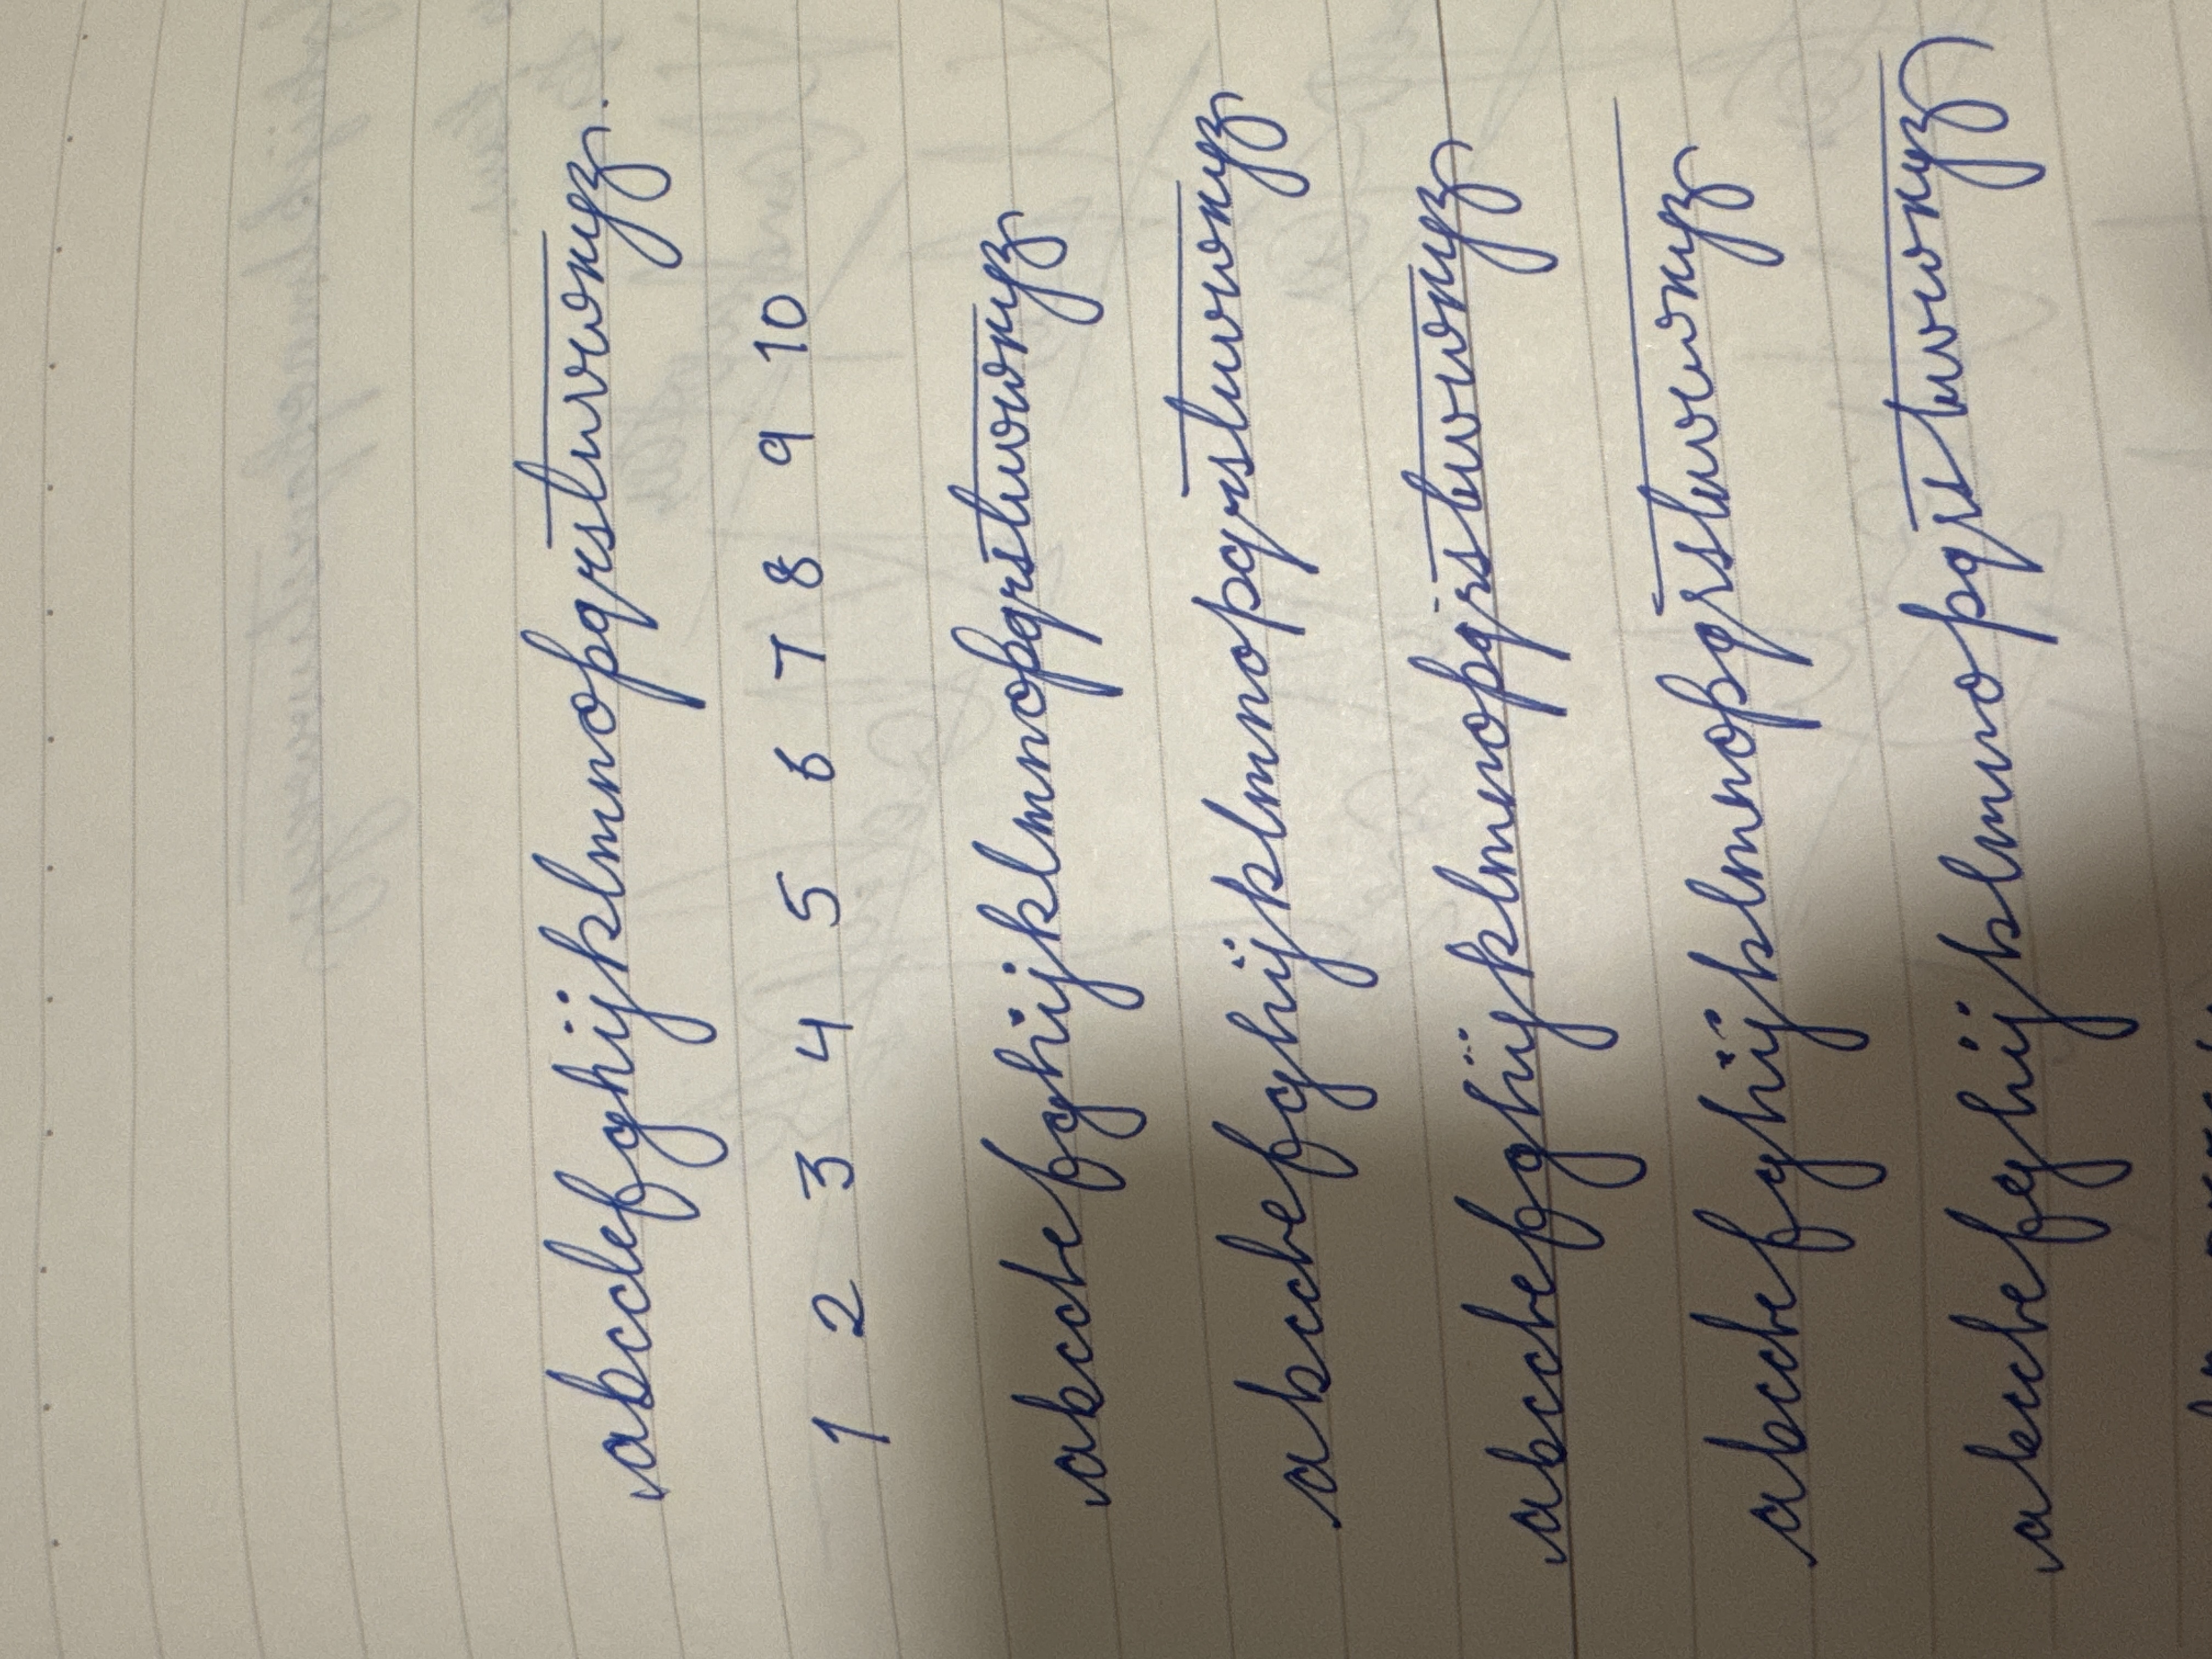 abcdefghijklmnopqrstuvwxyz
1 2 3 4 5 6 7 8 9 10
abcdefghijklmnopqrstuvwxyz
abcdefghijklmnopqrstuvwxyz
abcdefghijklmnopqrstuvwxyz
abcdefghijklmnopqrstuvwxyz
abcdefghijklmnopqrstuvwxyz